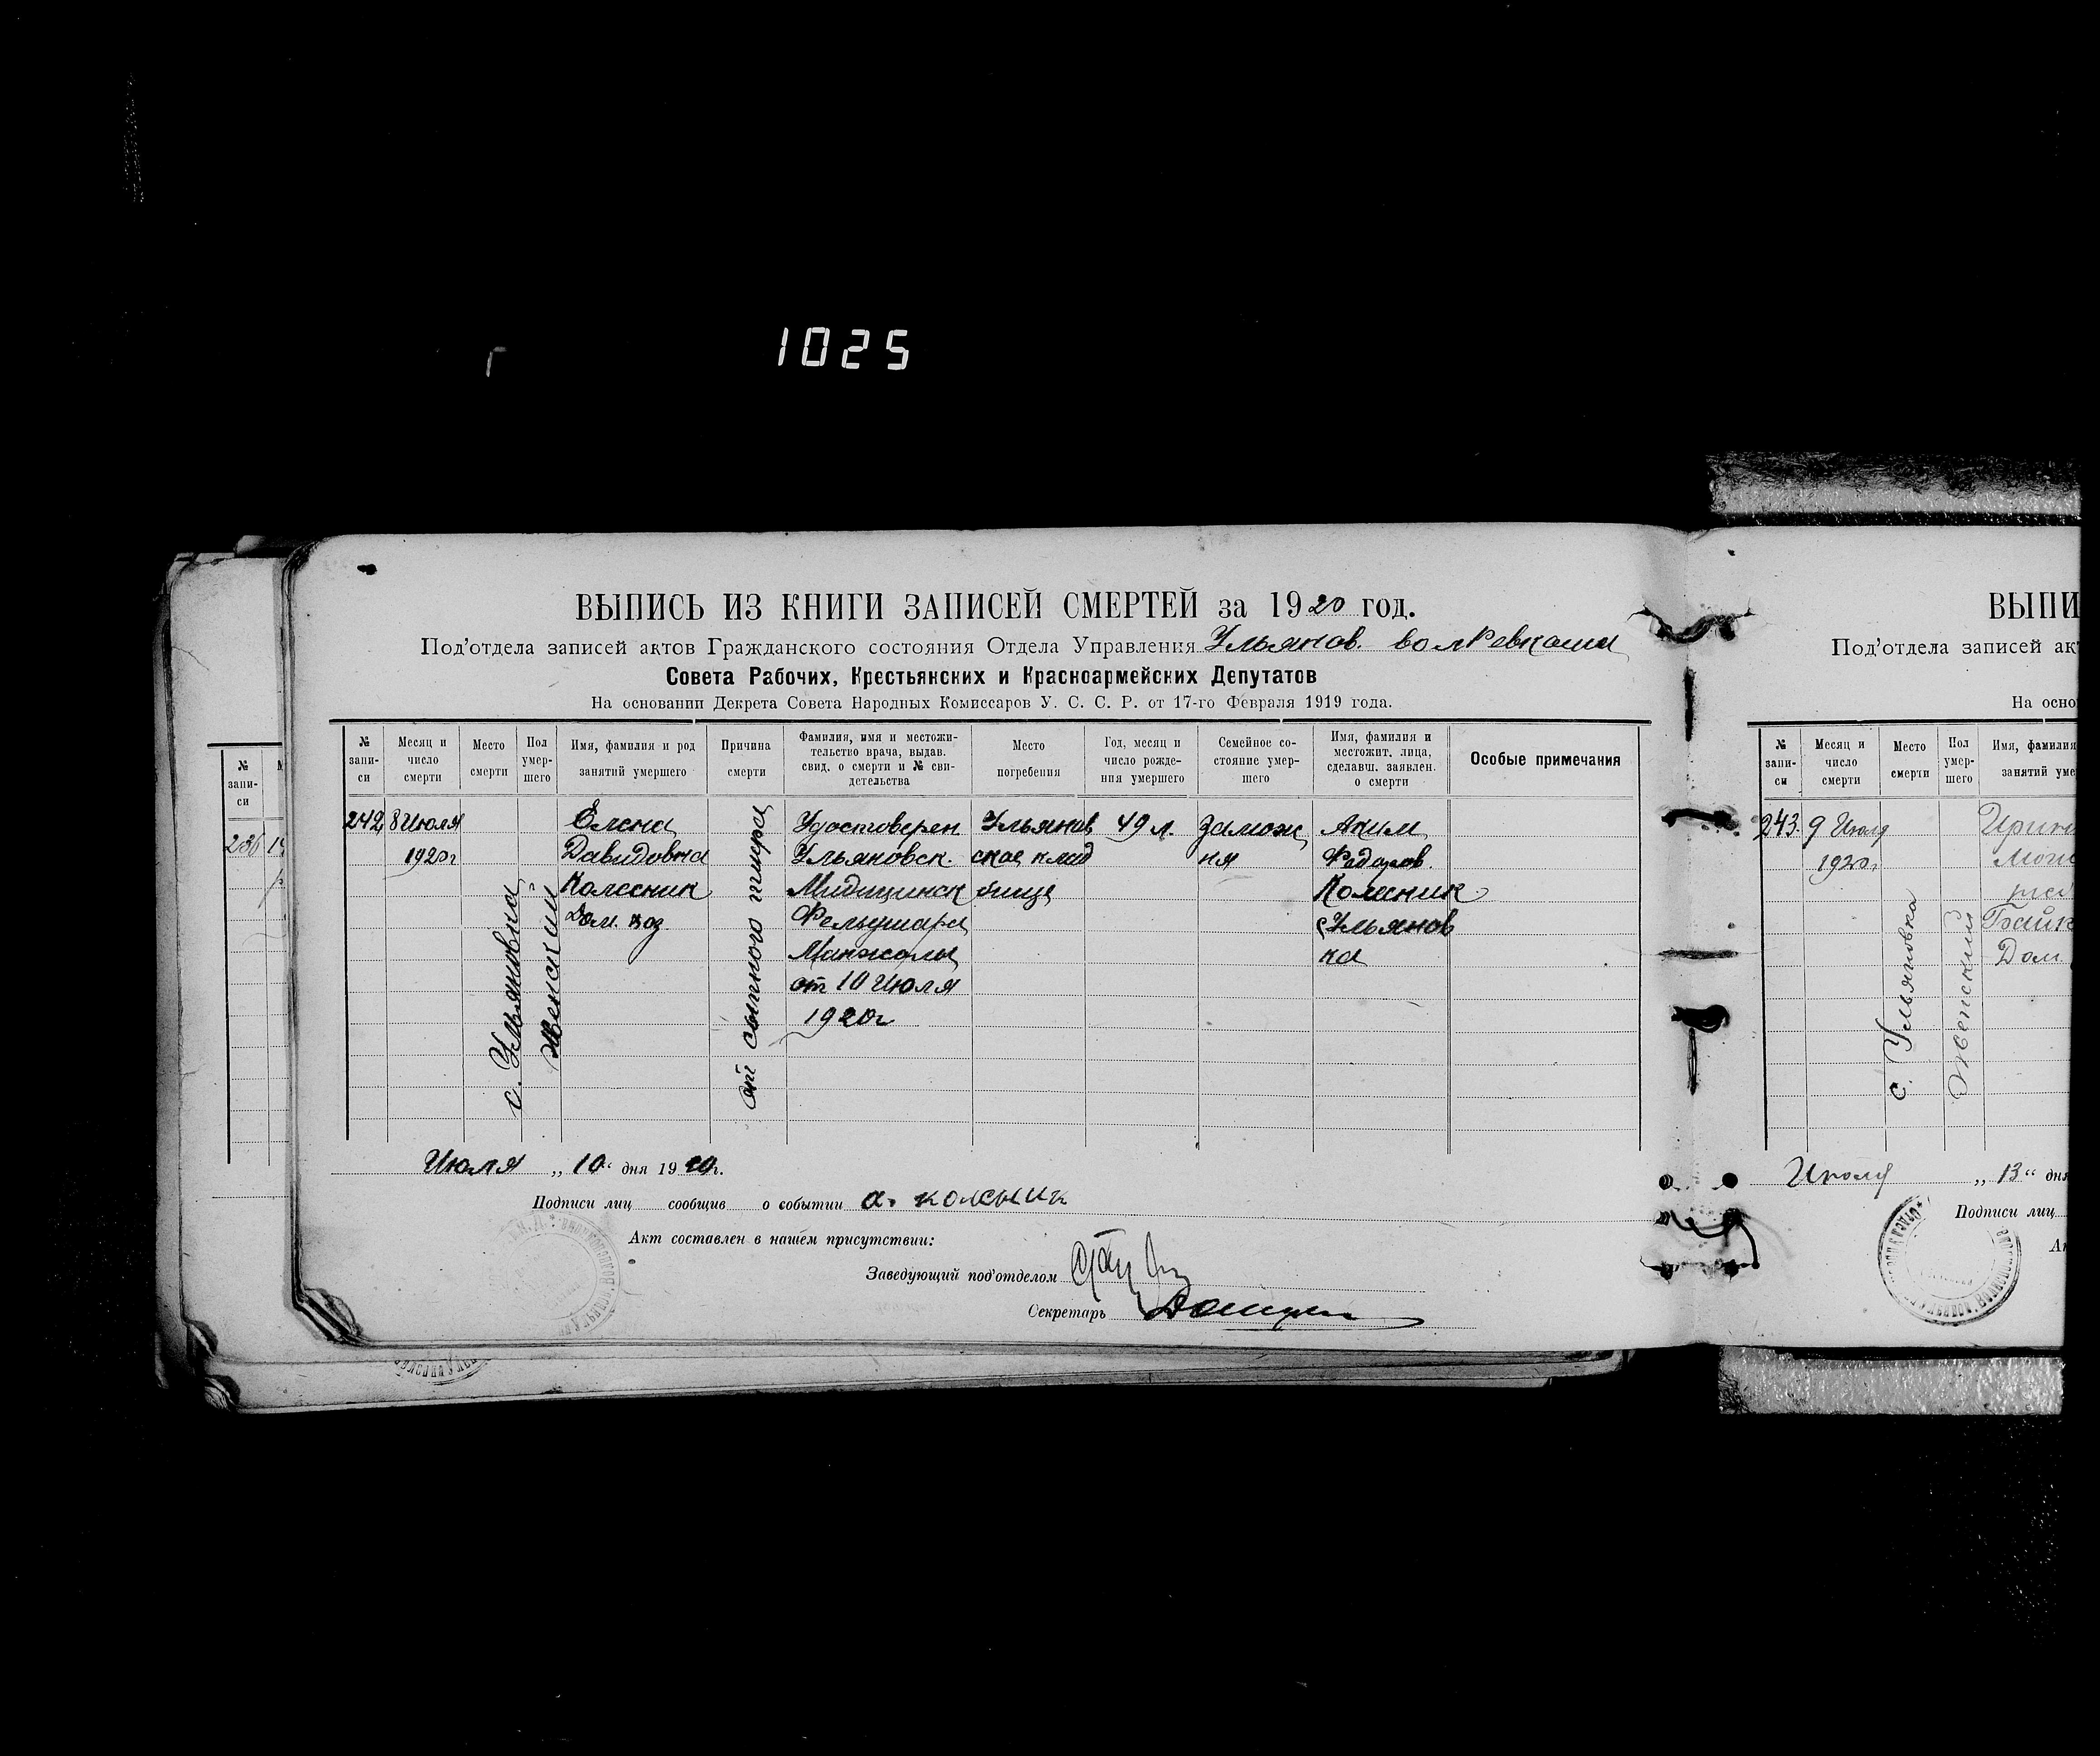 1025
ВЫПИСЬ ИЗ КНИГИ ЗАПИСЕЙ СМЕРТЕЙ за 1920 год.
Под'отдела записей актов Гражданского состояния Отдела Управления Ульянов. волРевкома
Совета Рабочих, Крестьянских и Красноармейских Депутатов
На основании Декрета Совета Народных Комиссаров У. С. С. Р. от 17-го Февраля 1919 года.
№ запи-си
Месяц и число смерти
Место смерти
Пол умер-шего
Имя, фамилия и род занятий умершего
Причина смерти
Фамилия, имя и местожи-тельство врача, выдав. свид. о смерти и № сви-детельства
Место погребения
Год, месяц и число рожде-ния умершего
Семейное со-стояние умер-шего
Имя, фамилия и местожит. лица, сделавш. заявлен. о смерти
Особые примечания
242
8 Июля
1920г
с. Ульяновка
Женский
Елена
Давидовна
Колесник
Дом. хоз
от сыпного тифа
Удостоверен
Ульяновск.
Медицинск
Фельдшера
Манжолы
от 10 Июля
1920г
Ульянов
ское клад
бище
49 л.
замуж
ня
Аким
Федоров.
Колесник
с Ульянов
ка
Июля „ 10 “ дня 1920г.
Подписи лиц сообщив о событии а. колсник
Акт составлен в нашем присутствии:
Заведующий под'отделом
Секретарь
№ запи-си
236
ВЫПИ
Под'отдела записей ак
На осно
№ запи-си
Месяц и число смерти
Место смерти
Пол умер-шего
Имя, фамилия
занятий уме
243.
9 Июля
1920г
с. Ульяновка
Женский
Дом.
Июля „ 13 “ дня
Подписи лиц